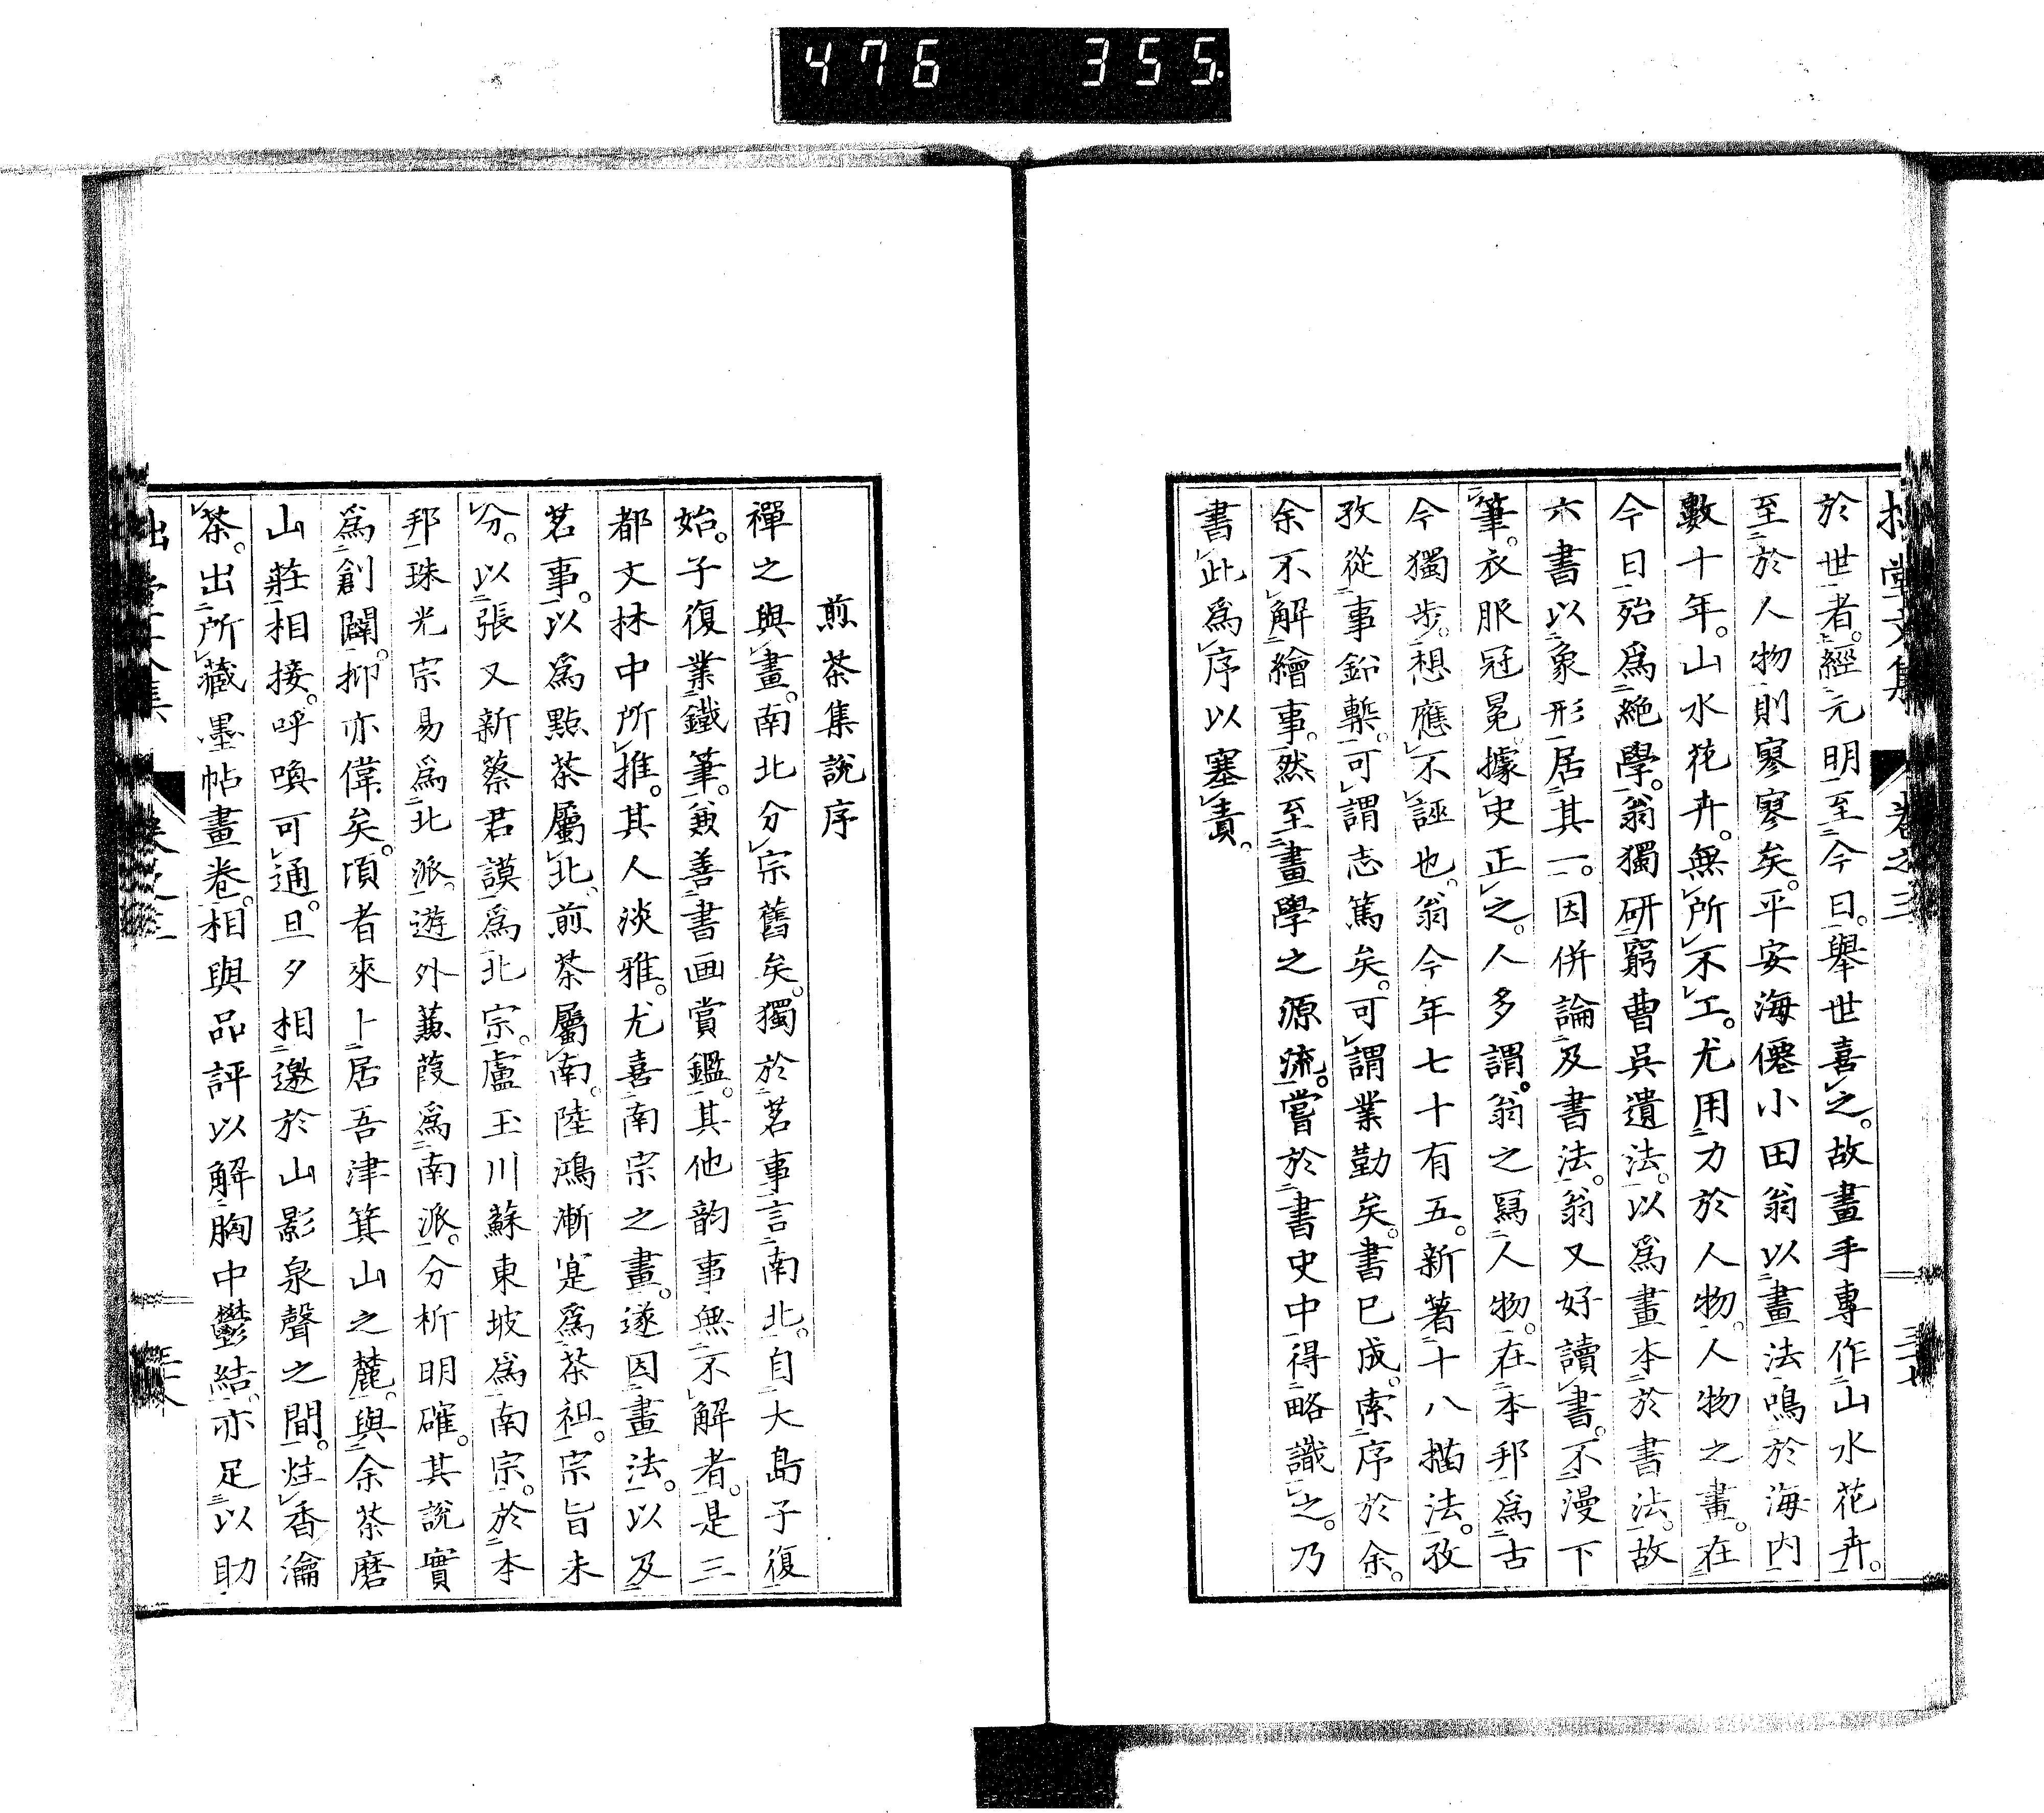 476 355.
堂文集 卷之三
於世者。經元明至今日。擧世喜之。故畫手專作山水花卉。
至於人物則寥寥矣。平安海僊小田翁以畫法鳴於海内
數十年。山水花卉。無所不工。尤用力於人物。人物之畫。在
今日殆爲絶學。翁獨研窮曹吳遺法。以爲畫本於書法。故
六書以象形居其一。因併論及書法。翁又好讀書。不漫下
筆。衣服冠冕。據史正之。人多謂。翁之寫人物。在本邦爲古
今獨步。想應不誣也。翁今年七十有五。新著十八描法。孜
孜從事鉛槧。可謂志篤矣。可謂業勤矣。書已成。索序於余。
余不解繪事。然至畫學之源流。嘗於書史中得略識之。乃
書此爲序以塞責。
煎茶集說序
禪之與畫。南北分宗舊矣。獨於茗事言南北。自大島子復
始。子復業鐵筆。兼善書画賞鑑。其他韵事無不解者。是三
都文林中所推。其人淡雅。尤喜南宗之畫。遂因畫法。以及
茗事。以爲點茶屬北。煎茶屬南。陸鴻漸寔爲茶祖。宗旨未
分。以張又新蔡君謨爲北宗。盧玉川蘇東坡爲南宗。於本
邦珠光宗易爲北派。遊外蒹葭爲南派。分析明確。其說實
爲創闢。抑亦偉矣。頃者來卜居吾津箕山之麓。與余茶磨
山莊相接。呼喚可通。旦夕相邀於山影泉聲之間。炷香瀹
茶。出所藏墨帖畫卷。相與品評以解胸中鬱結。亦足以助